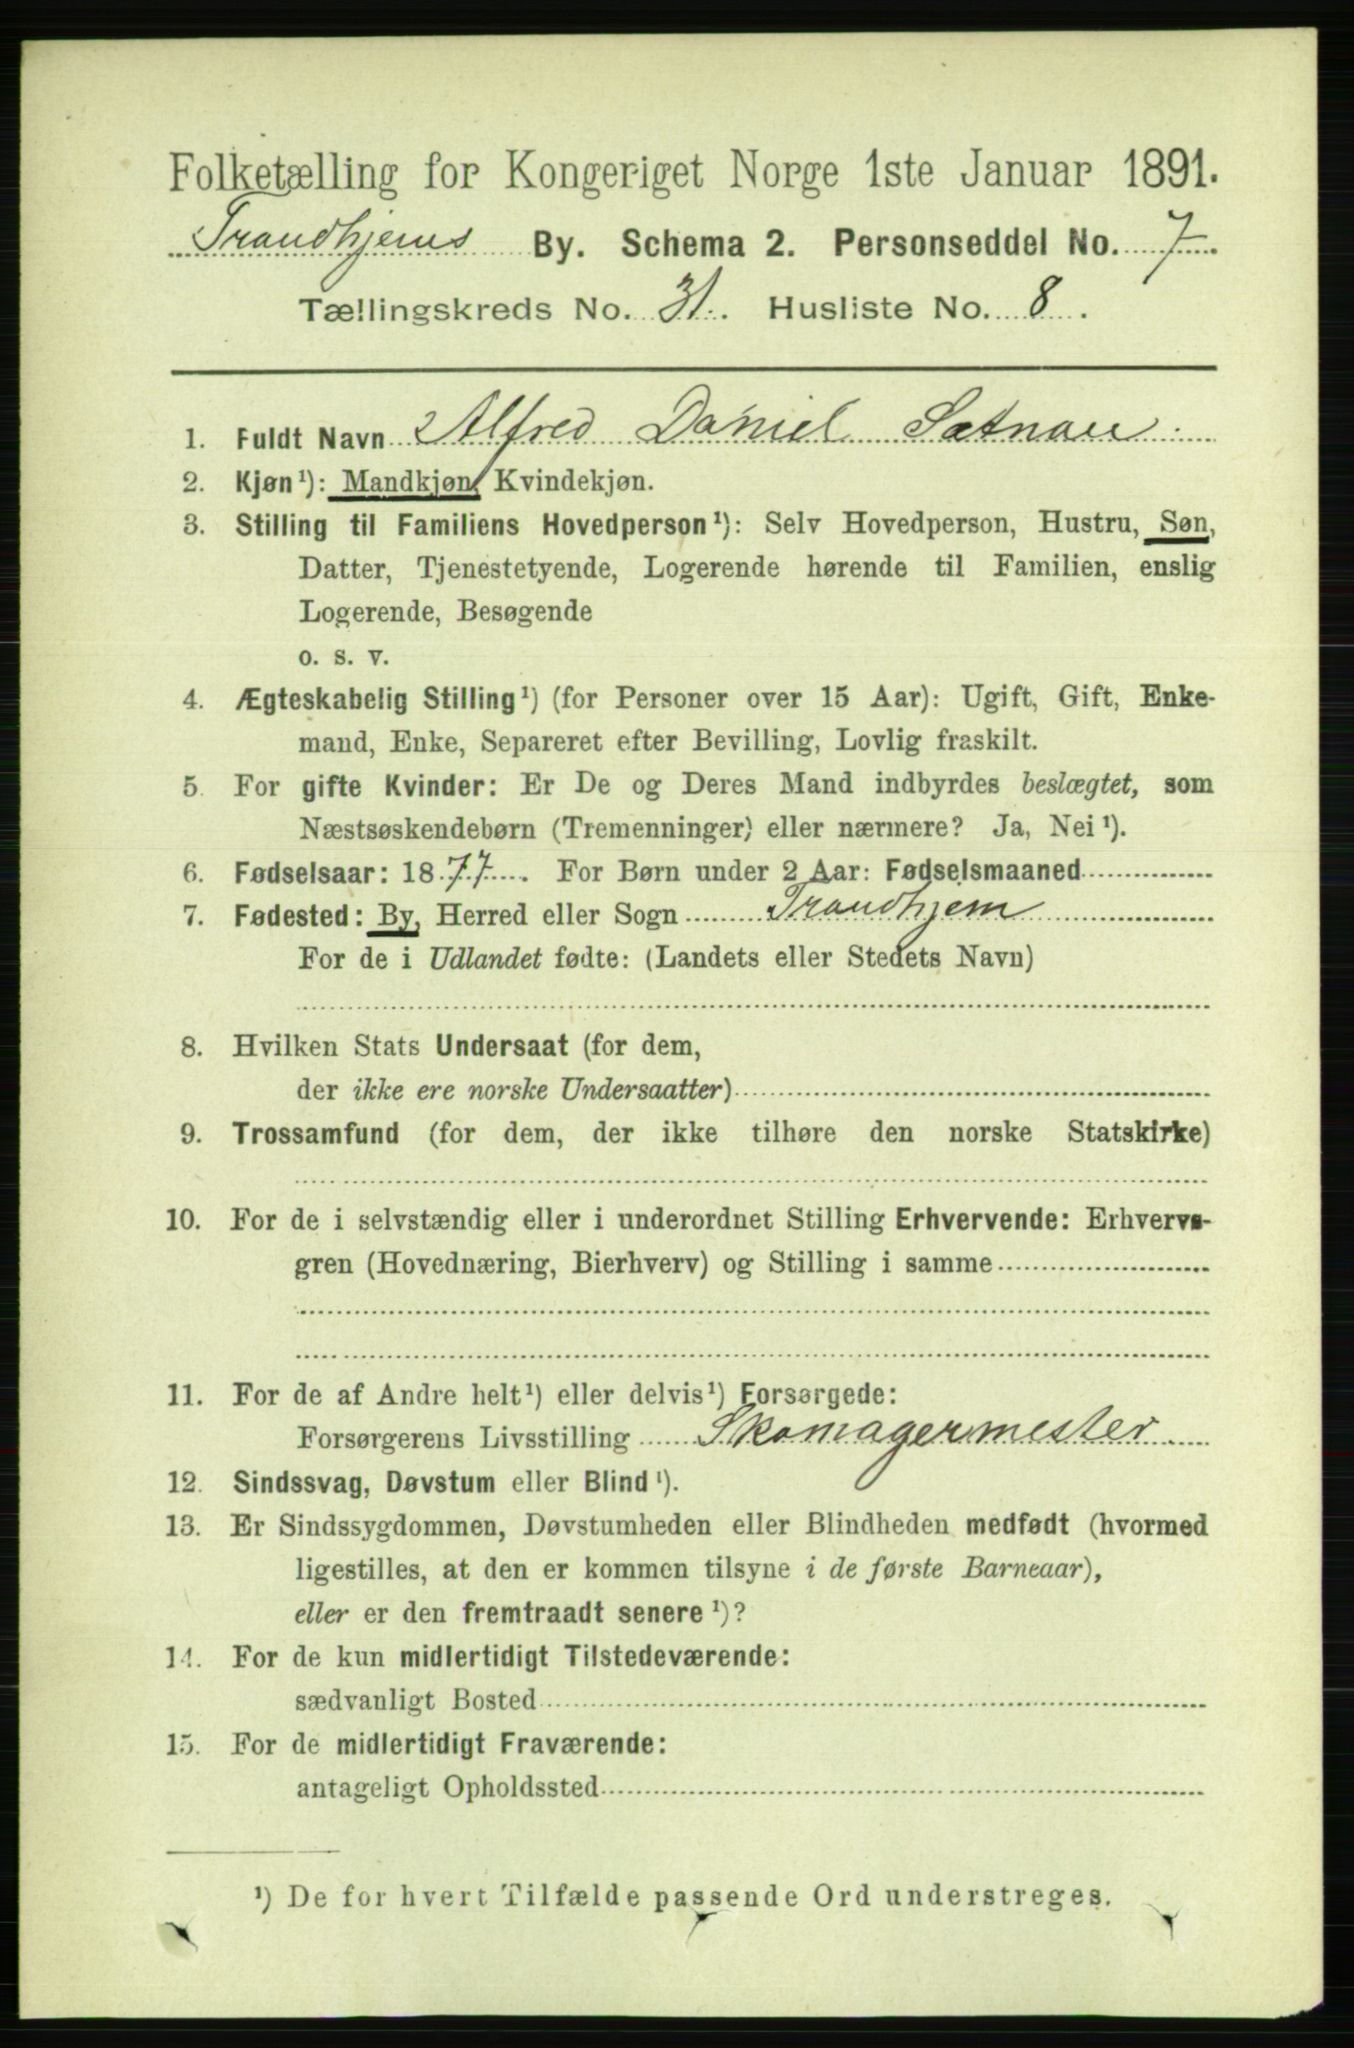 Folketælling for Kongeriget Norge 1ste Januar 1891.
Trondhjems By. Schema 2. Personseddel No. 7.
Tællingskreds No. 31. Husliste No. 8.
1. Fuldt Navn Alfred Daniel Sætnau
2. Kjøn¹): Mandkjøn, Kvindekjøn.
3. Stilling til Familiens Hovedperson¹): Selv Hovedperson, Hustru, Søn,
Datter, Tjenestetyende, Logerende hørende til Familien, enslig
Logerende, Besøgende
o. s. v.
4. Ægteskabelig Stilling¹) (for Personer over 15 Aar): Ugift, Gift, Enke-
mand, Enke, Separeret efter Bevilling, Lovlig fraskilt.
5. For gifte Kvinder: Er De og Deres Mand indbyrdes beslægtet, som
Næstsøskendebørn (Tremenninger) eller nærmere? Ja, Nei¹).
6. Fødselsaar: 1877. For Børn under 2 Aar: Fødselsmaaned
7. Fødested: By, Herred eller Sogn Trondhjem
For de i Udlandet fødte: (Landets eller Stedets Navn)
8. Hvilken Stats Undersaat (for dem,
der ikke ere norske Undersaatter)
9. Trossamfund (for dem, der ikke tilhøre den norske Statskirke)
10. For de i selvstændig eller i underordnet Stilling Erhvervende: Erhvervs-
gren (Hovednæring, Bierhverv) og Stilling i samme
11. For de af Andre helt¹) eller delvis¹) Forsørgede:
Forsørgerens Livsstilling Skomagermester
12. Sindssvag, Døvstum eller Blind¹).
13. Er Sindssygdommen, Døvstumheden eller Blindheden medfødt (hvormed
ligestilles, at den er kommen tilsyne i de første Barneaar),
eller er den fremtraadt senere¹)?
14. For de kun midlertidigt Tilstedeværende:
sædvanligt Bosted
15. For de midlertidigt Fraværende:
antageligt Opholdssted
¹) De for hvert Tilfælde passende Ord understreges.